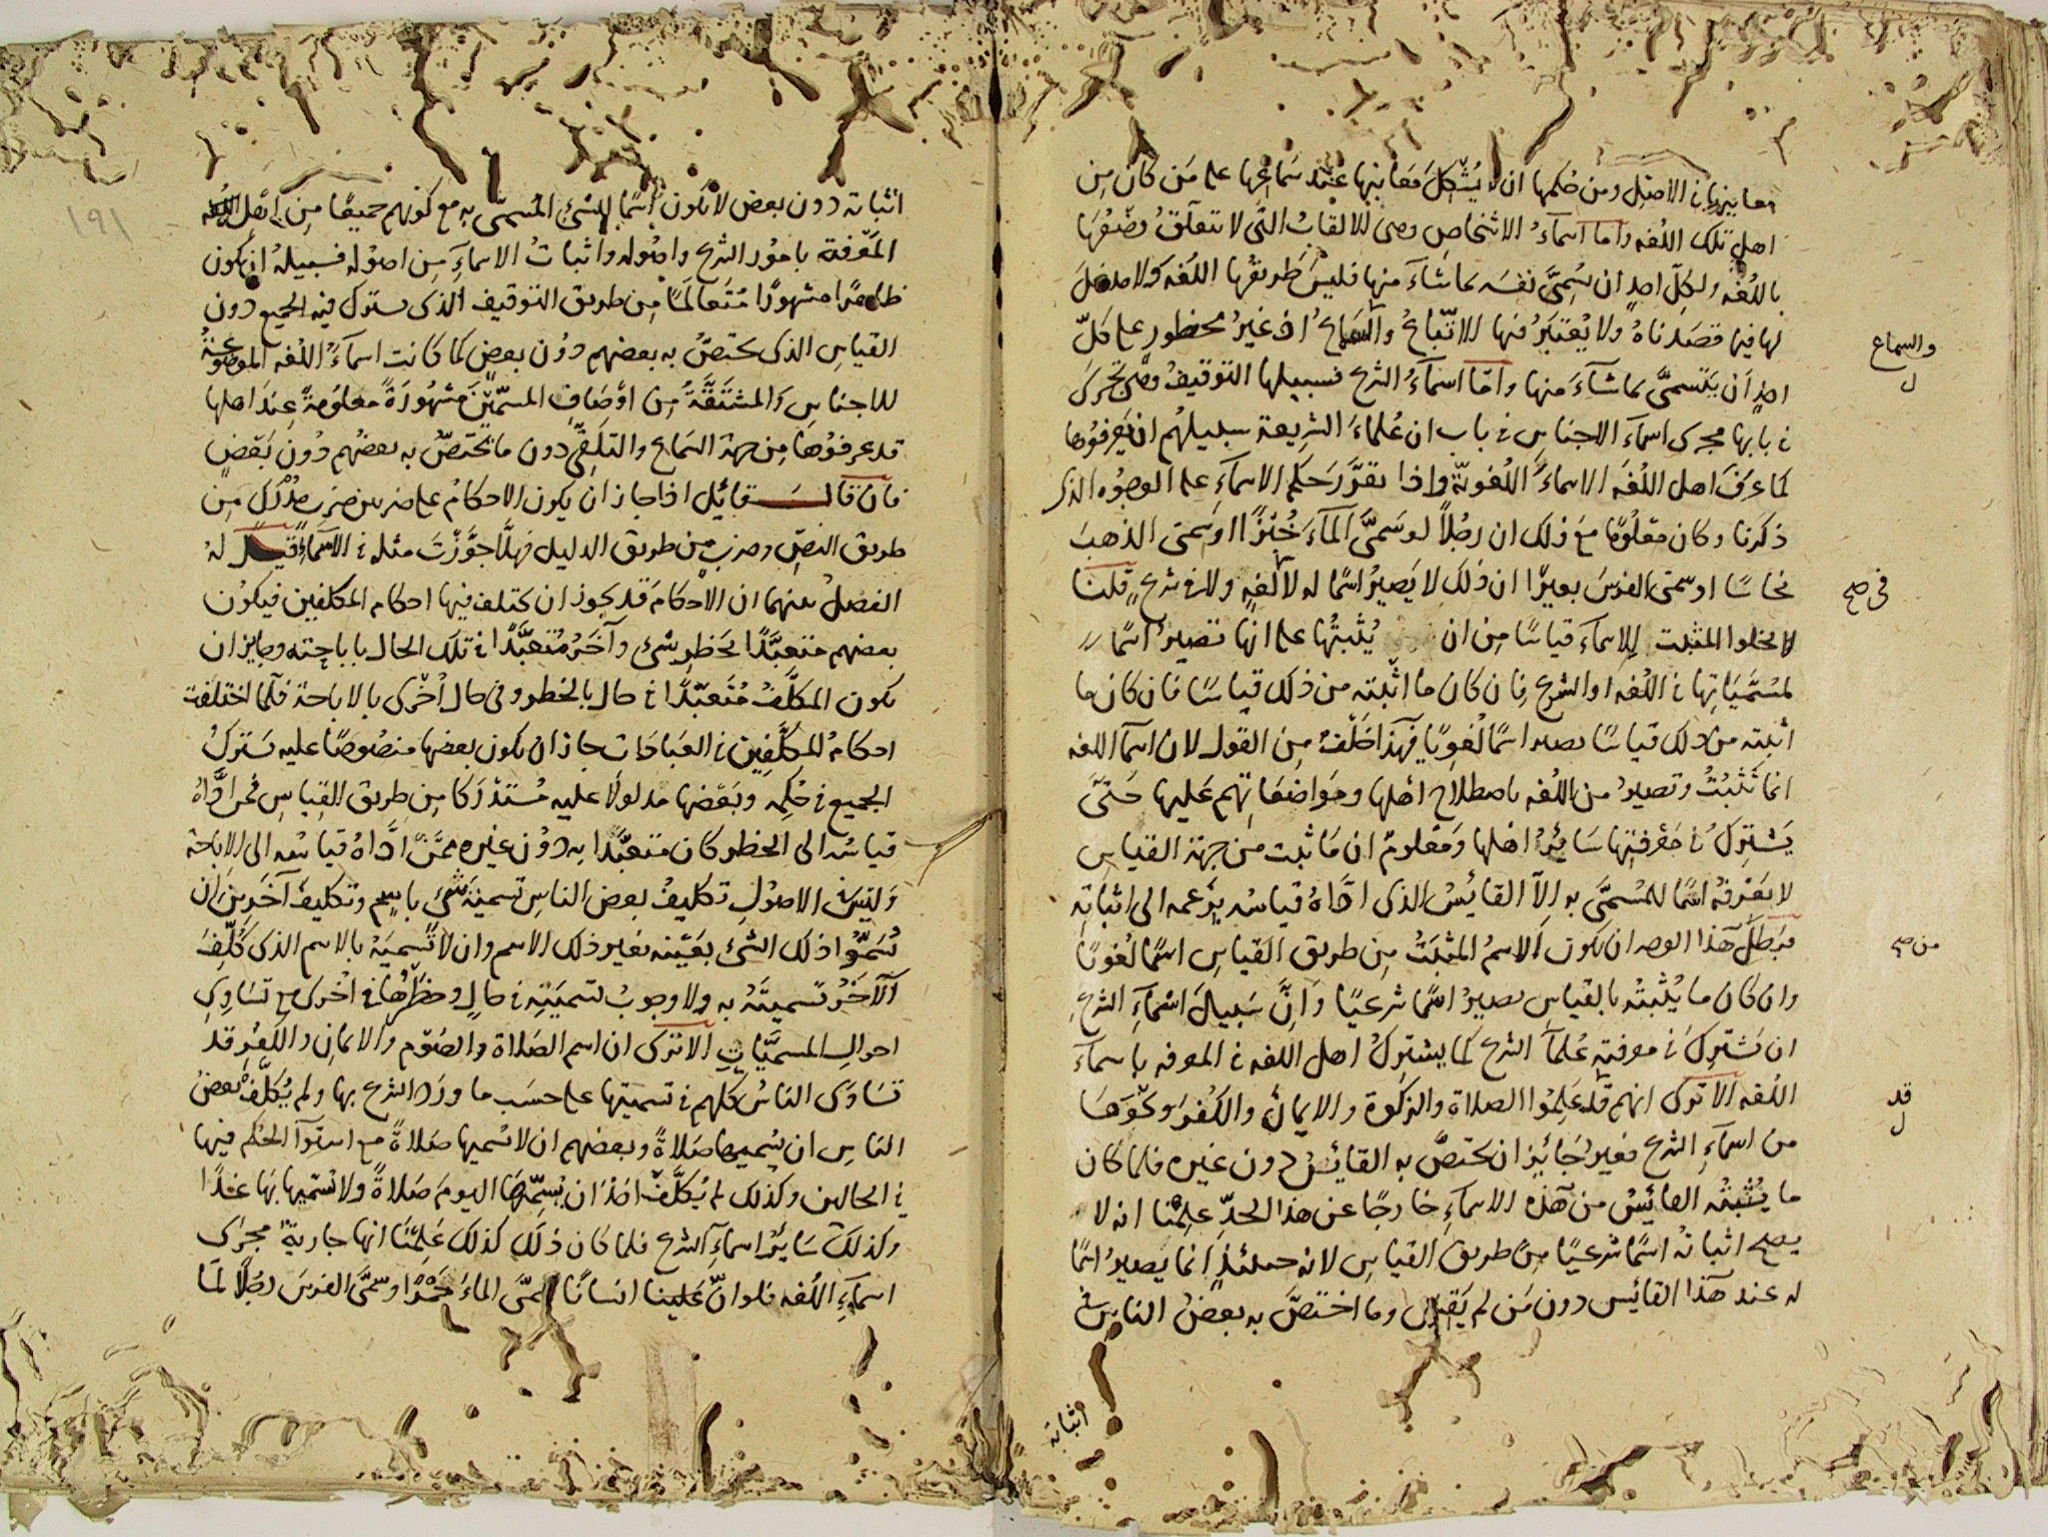 معانيها في الاصل ومن حكمها ان لا يُشْكِلَ مَعَانيها عند سَامعيها على مَن كان مِن
اهلِ تلك اللغه واما اسمآءُ الاشخاصِ وهى الالقابُ التى لا تتعلّقُ وضْعُهَا
باللغه ولكلّ احدٍ ان يُسَمِّىَ نفسَه بما شآءَ منها فليسَ طريقُها اللغه ولا مدخلَ
لها فيها قصَدناهُ ولا يُعتَبَرُ فيها الاتّباعُ والسماعُ اذ غيرُ محظورٍ على كلّ
احدٍ أن يَتَسمّىَ بما شآءَ منها وامّا اسمآءُ الشرع فسبيلها التوقيفُ وهى تجرى
في بابها مجرى اسمآء الاجناس في باب ان عُلماءَ الشريعة سبيلهُم ان يَعرفُوها
كما عرَفَ اهل اللغه الاسمآءَ اللغويّة واذا تقرَّرَ حكم الاسمآءِ على الوجُوه الذى
ذكرنا وكان معلُومًا مع ذلك ان رجُلاً لو سَمىَّ المآءَ خُبْزًا او سَمى الذهبَ
نحاسًا او سمّى الفرسَ بعيرًا ان ذلك لا يَصيرُ اسمًا له لا لغةٍ ولا في شرعٍ قلنا
لا يخلوا المثبت للاسمآء قياسًا مِن ان يُثبتُها على انها تصيرُ اسمًا
لمسَمَّيَاتِها في اللغه او الشرع فان كان ما اثبته من ذلك قياسًا فان كان ما
اثبته من ذلك قياسًا يصير اسمًا لُغويًا فهَذا خَلْفٌ مِن القول لان اسمآ اللغه
انما تَثْبُتُ وتصيرُ من اللغه باصطلاح اهلها ومَواضعَاتهم عَليها حَتّى
يَشتركَ في مَعْرفتِها سَائرُ اهلها وَمعْلومٌ ان مَا ثبت من جهة القياس
لا يَعْرفه اسمًا للمُسمَّى به الآ القائسُ الذى ادّاهُ قياسُه بزعمه الى اثباتِه
فبَطلَ هَذا الوجه ان يكون الاسمُ المثْبَتُ مِن طريق القياس اسمًا لغويًا
وان كان ما يُثْبتُه بالقياس يصيرُ اسمًا شرعيًا وَانَّ سَبيلَ اسْمآءِ الشرعِ
ان تَشتركَ في معرفتهِ عُلمآُ الشرع كما يشتركُ اهل اللغه في المعرفه باسمآء
اللغه الا ترى انهم قد عَلِمُوا الصلاة والزكوةَ والايمانَ والكُفرَ ونحْوَهَا
من اسمآءِ الشرع فغيرُ جَائزٍ ان يختصَّ به القائسُ دون غيره فلما كان
ما يُثْبتُه القائسُ من هَذه الاسمآءِ خارجًا عن هذا الحدّ عَلِمْنا انه لا
يصح اثباتُه اسمًا شرعيًا مِن طريق القياس لانه حينئذٍ انما يصيرُ اسمًا
له عند هَذا القائس دون مَن لم يَقِس وما اختصَّ به بعضُ الناسِ في
والسماع
ل
في صح
من صح
قد
ل
اثباته
١٩١
اثباته دون بعض لا يكون اسمًا للشىءِ المُسمّى به مع كونهم جميعًا مِن اهْل
المَعْرفة بامُور الشرع واصُوله واثباتُ الاسمآءِ مِن اصوله فسبيلهُ ان يكون
ظاهرًا مشهورًا مُتَعالمًا مِن طريق التوقيف الذى يشترك فيه الجميع دون
القياس الذى يختصُّ به بعضهم دوُن بعض كما كانت اسمآءُ اللغه الموضوعَةُ
للاجناس والمشتَقَّةُ مِن اَوْصَافِ المسمَّيْنَ مشهُورَةً معلومةً عِندَ اهلها
قد عرفوُها مِن جهة السَماع والتلقِّى دون ما يختصّ به بعضهُم دُون بَعْضٍ
فان قالَ قائل اذا جاز ان يكون الاحكامُ على ضربين ضرب مُدْرَكٌ مِن
طريق النصِّ وضربٌ مِن طريق الدليل فهلّا جوَّزْتَ مثله في الاسمآءِ قيلَ له
الفصلُ بينهما ان الاحكامَ قد يجوز ان يختلف فيها احكام المكلفين فيكوُن
بعضهم متعبَّدًا بحَظرِ شىء وآخَرُ مُتعبَّدًا في تلك الحال باباحته وجايز ان
يكون المكلَّفُ مُتَعبّدًا في حال بالحظر وفي حال اُخْرى بالاباحة فلّما اختلفت
احكامُ المكلَّفِين في العبادات جاز ان يكون بعضها منصُوصًا عليه يَشتركُ
الجميع في حُكمِه وبَعْضها مدلولًا عليه مُستدْرَكا مِن طريق القياس فمَن ادَّاهُ
قياسُه الى الحظر كان متعبَّدًا به دوُن غيره ممَّنْ ادَّاهُ قياسُه الى الاباحة
وَليسَ في الاصُولِ تكليفُ بعض الناسِ تسميَةَ شىءٍ باسم وتكليفُ آخَرِينَ ان
يُسَمّوُا ذلك الشىءَ بعَيْنه بغير ذلك الاسم وان لا يُسميَهُ بالاسم الذى كُلِّفَ
الآخَرُ تسميتَهُ به ولا وجوبُ تسميَتِه في حالٍ وحظرُها في اخرى مع تسَاوى
احوالِ المسمَّيَاتِ الا ترَى ان اسم الصَلاة والصّوْم والايمانِ والكفرِ قد
تسَاوَى الناسُ كلهم في تسميتها على حَسَب ما ورَد الشرع بها ولم يُكلَّفْ بعضُ
الناسِ ان يُسميها صَلاةً وبعضهم ان لا يُسميها صَلاةً مع استوآ الحكم فيها
في الحالين وكذلك لم يُكلَّفْ احَدٌ ان يُسِمِّيَهَا اليومَ صَلاةً ولا يُسميها بهَا غدًا
وكذلكَ سَايرُ اسماءِ الشرع فلما كان ذلك كذلك عَلِمْنَا انها جاريةٌ مجرَى
اسمآءِ اللغه فلو انّ علينا انسانًا سمَّى الماءَ خَمْرًا او سمَّى الفرسَ رجُلًا لمَا